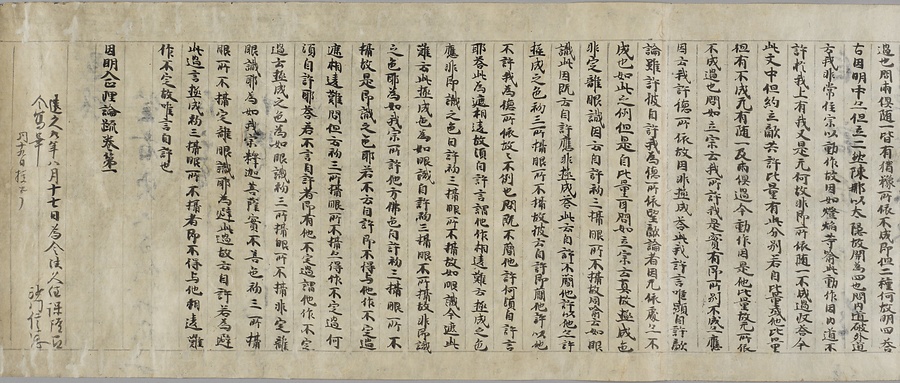 過也問兩俱隨一皆有猶豫所依不成耶但二種何故明四答
古因明中之但立二故陳那以大隱故開爲四也問勝論破外道
言我非常住宗以動作故因如燈焰等者此動作因内道不
許於我上有我又是无何故非耶所依隨一不成過收答今
此文中但約立敵共許比量有此分別若自比量或他比量
但有不成无有隨一及兩俱過今動作因是他比量故无所依
不成過也問如立宗云我所許我是實有耶所別不成應
因云我許德所依故因非極成答此我許言唯顯自許敵
論雖許彼自許我爲德所依聖敵論者因无依處之不
成也如此之例但是自比量耳問如立宗云真故極成色
非定離眼識因云自許初三攝眼所不攝故同喻云如眼
識此因既云自許應非極成答此云自許不簡他許以他之許
極成之色初三所攝眼所不攝故彼云自許即簡他許以他
不許我爲德所依故之不例也問既不簡他許何須自許言
耶答此爲遮相違故須自許言謂他作相違難云極成之色
應非即識之色自許初三攝眼所不攝故如眼識今遮此
難云此極成色爲如眼識自許初三攝眼不所攝故非即識
之色耶爲如我宗所許他方佛色自許初三攝眼所不
攝故是即識之色耶若不云自許即不得与他作不定過
遮相違難問但云初三所攝眼所不攝之得作不定過何
須自許耶答若不言自許者即有他不定過謂他作不定
過云極成之色爲如眼識初三所攝眼所不攝非定離
眼識耶爲如我宗釋迦菩薩實不善色初三所攝
眼所不攝定離眼識耶爲避此過故云自許若爲避
此過言極成初三攝眼所不攝者即不得与他相違難
作不定故唯言自許也
因明入正理論疏卷第一
八月十七日爲